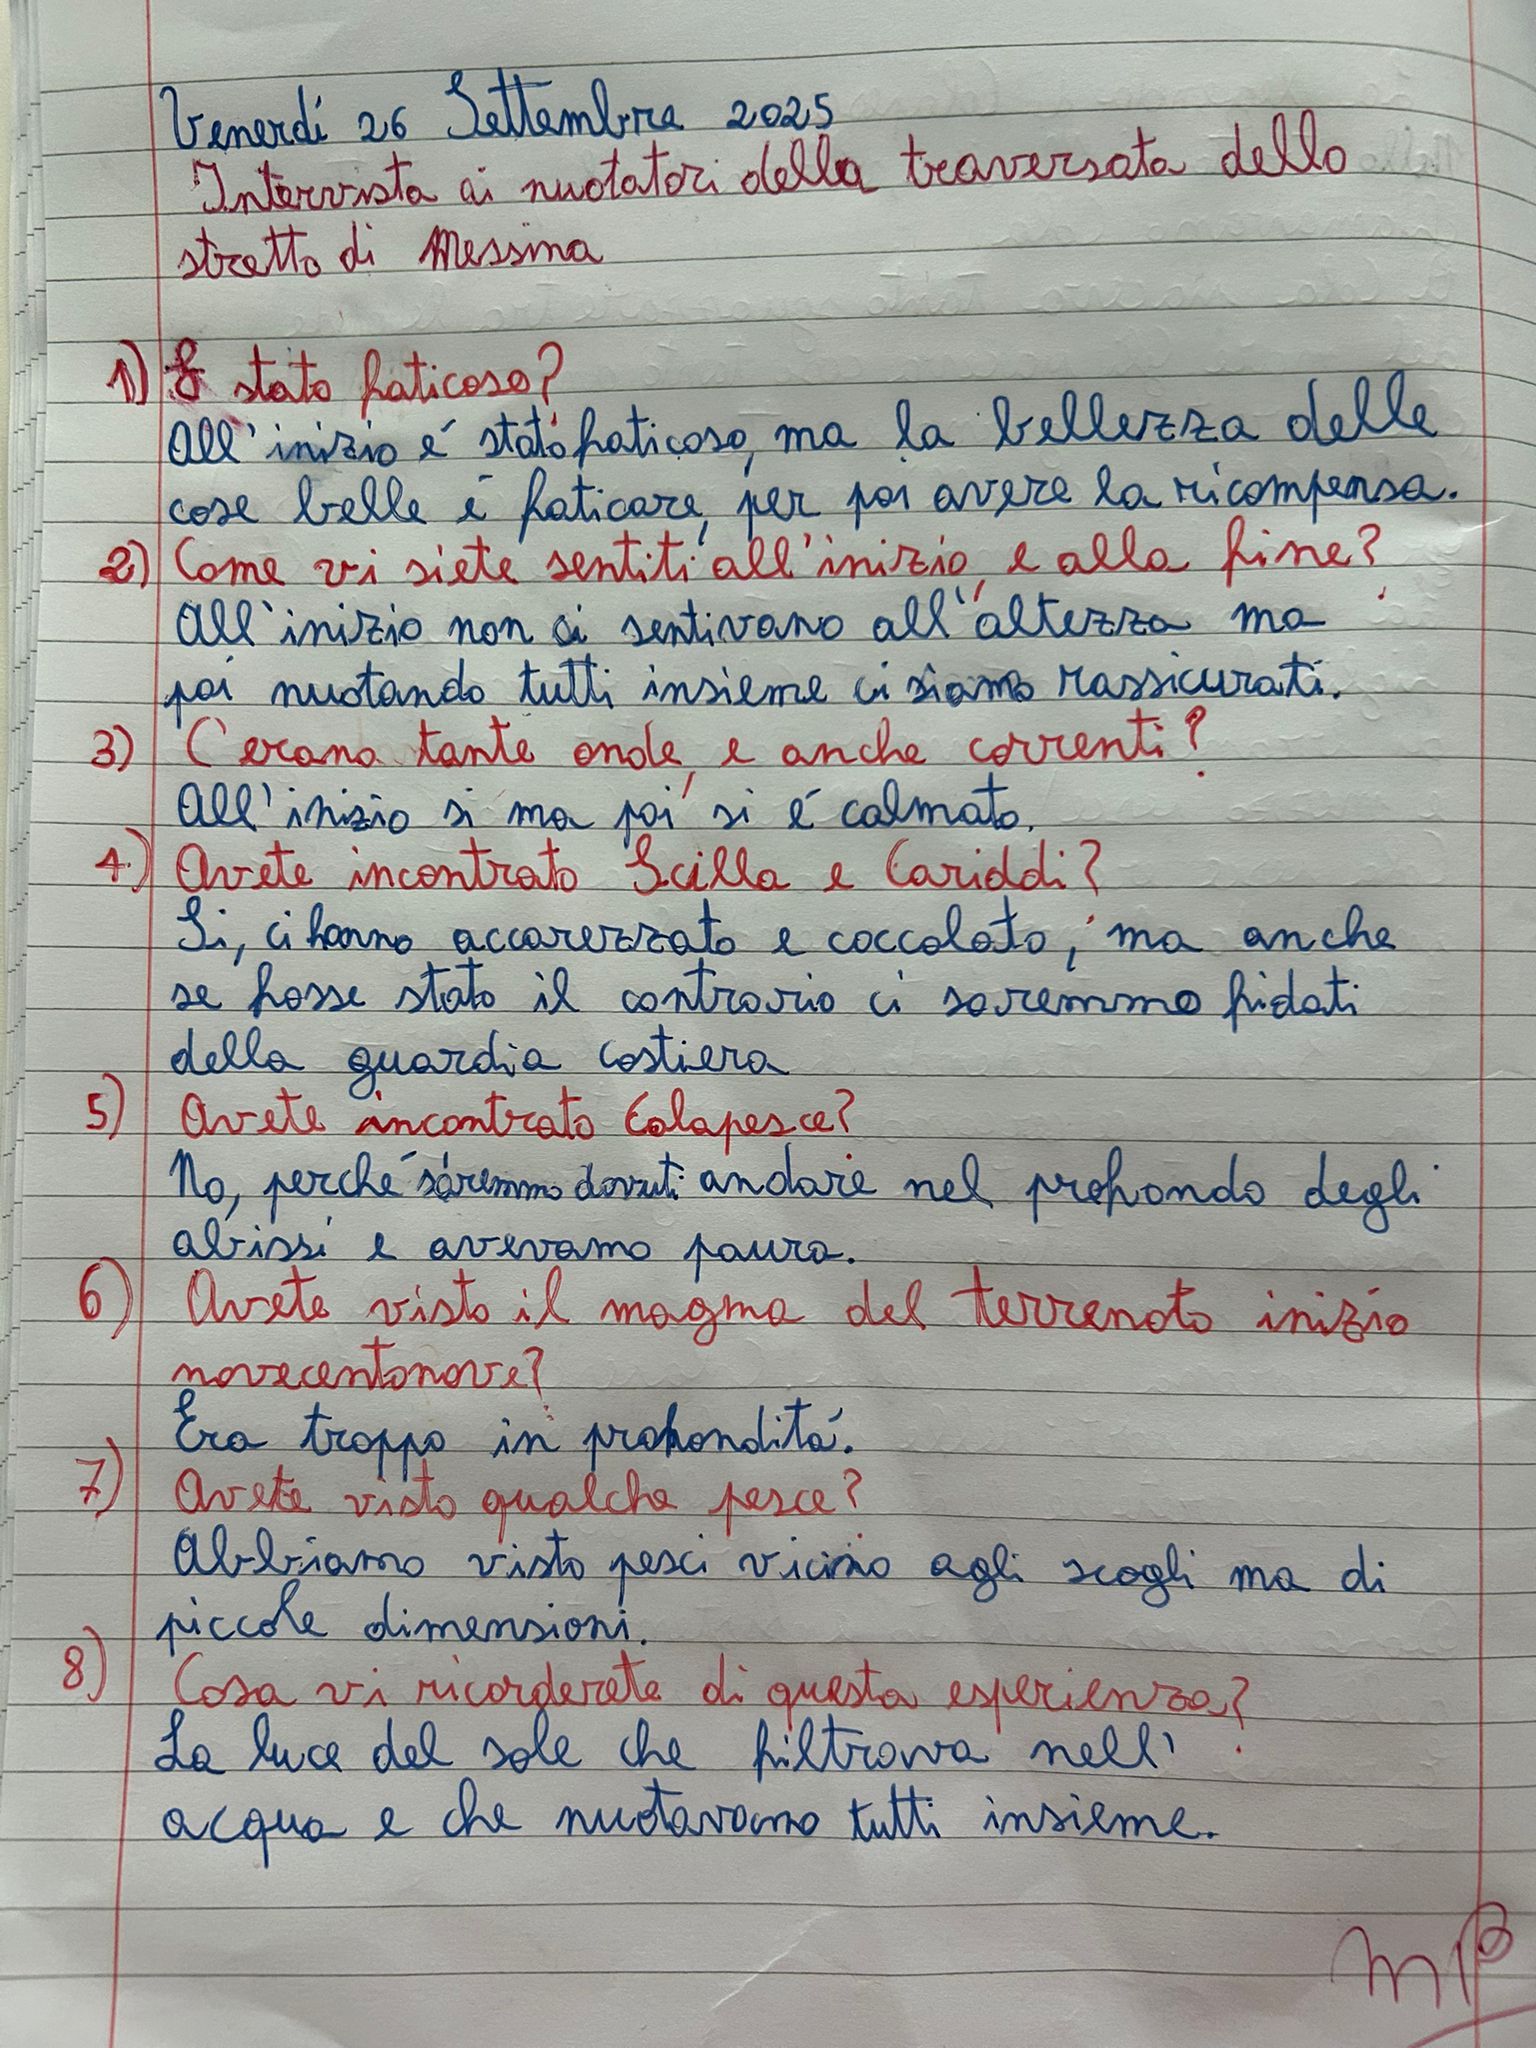 Venerdí 26 Settembre 2025
Intervista ai nuotatori della traversata dello
stretto di Messina
1) É stato faticoso?
All'inizio é stato faticoso, ma la bellezza delle
cose belle é faticare, per poi avere la ricompensa.
2) Come vi siete sentiti all'inizio, e alla fine?
All'inizio non ci sentivano all'altezza ma
poi nuotando tutti insieme ci siamo rassicurati.
3) C'erano tante onde, e anche correnti?
All'inizio si ma poi si é calmato.
4) Avete incontrato Scilla e Cariddi?
Si, ci hanno accarezzato e coccolato, ma anche
se fosse stato il contrario ci saremmo fidati
della guardia costiera
5) Avete incontrato Colapesce?
No, perché saremmo dovuti andare nel profondo degli
abissi e avevamo paura.
6) Avete visto il magma del terrenoto inizio
novecentonove?
Era troppo in profonditá.
7) Avete visto qualche pesce?
Abbiamo visto pesci vicino agli scogli ma di
piccole dimensioni.
8) Cosa vi ricorderete di questa esperienza?
La luce del sole che filtrava nell'
acqua e che nuotavamo tutti insieme.